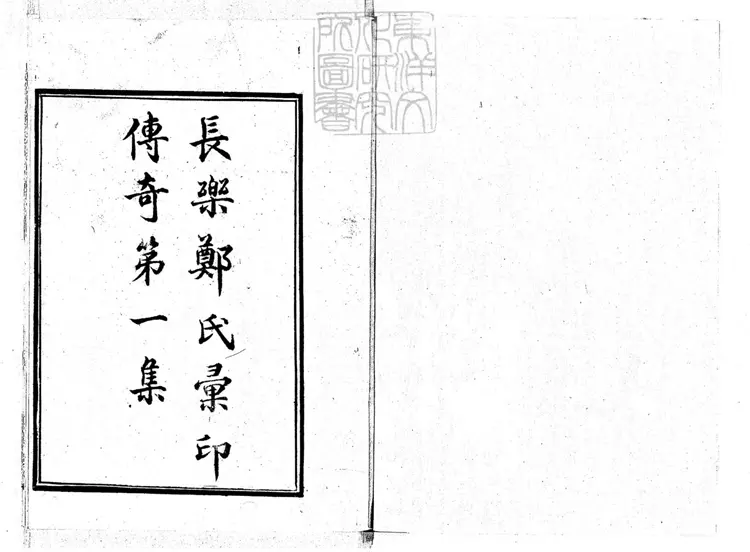 長樂鄭氏彙印
傳奇第一集
東洋文
化研究
所圖書